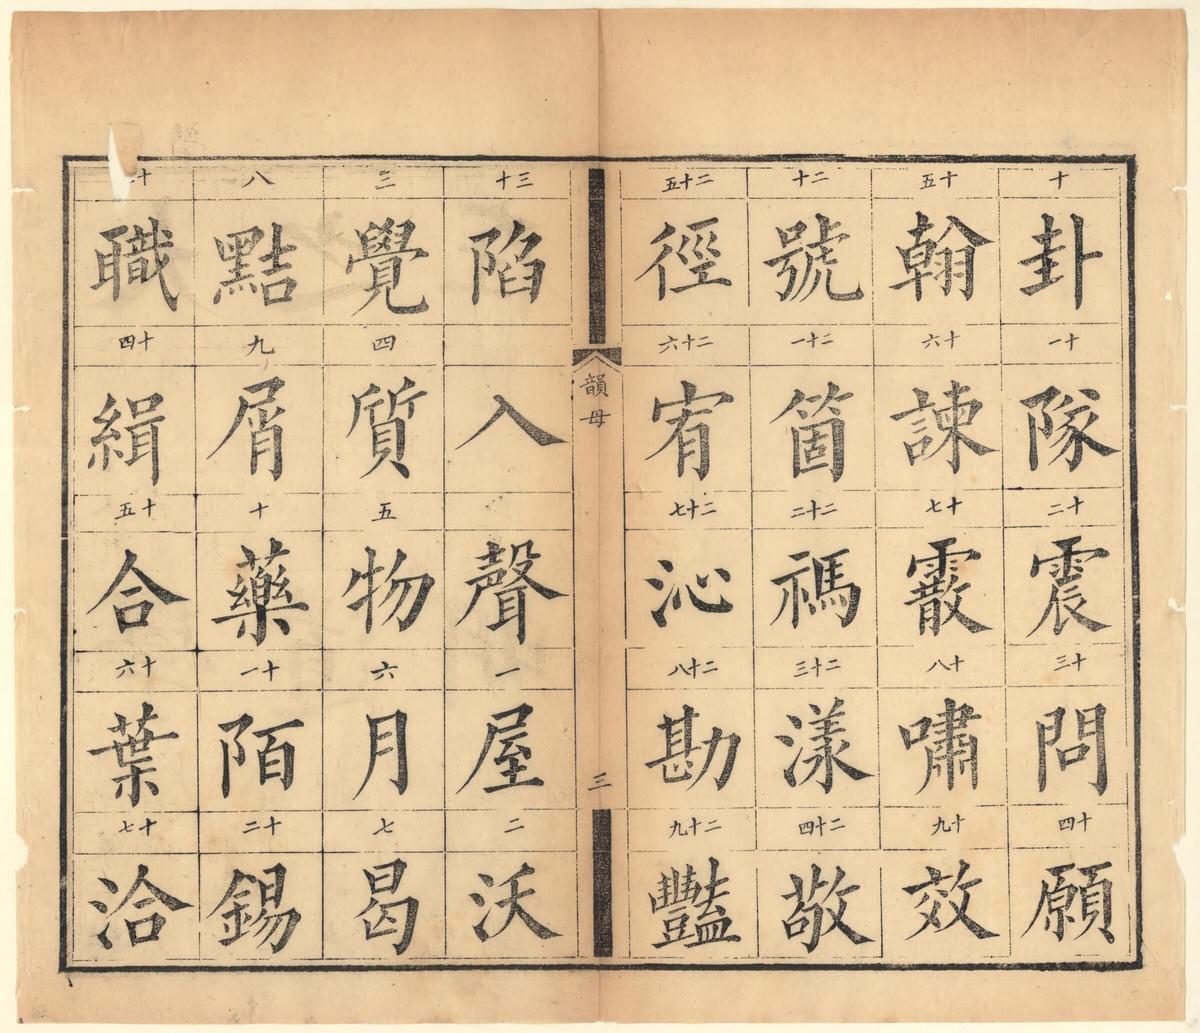 十
卦
十一
隊
十二
震
十三
問
十四
願
十五
翰
十六
諫
十七
霰
十八
嘯
十九
效
二十
號
二十一
箇
二十二
禡
二十三
漾
二十四
敬
二十五
徑
二十六
宥
二十七
沁
二十八
勘
二十九
豔
韻母
三
三十
陷
入
聲
一
屋
二
沃
三
覺
四
質
五
物
六
月
七
曷
八
黠
九
屑
十
藥
十一
陌
十二
錫
十
職
十四
緝
十五
合
十六
葉
十七
洽